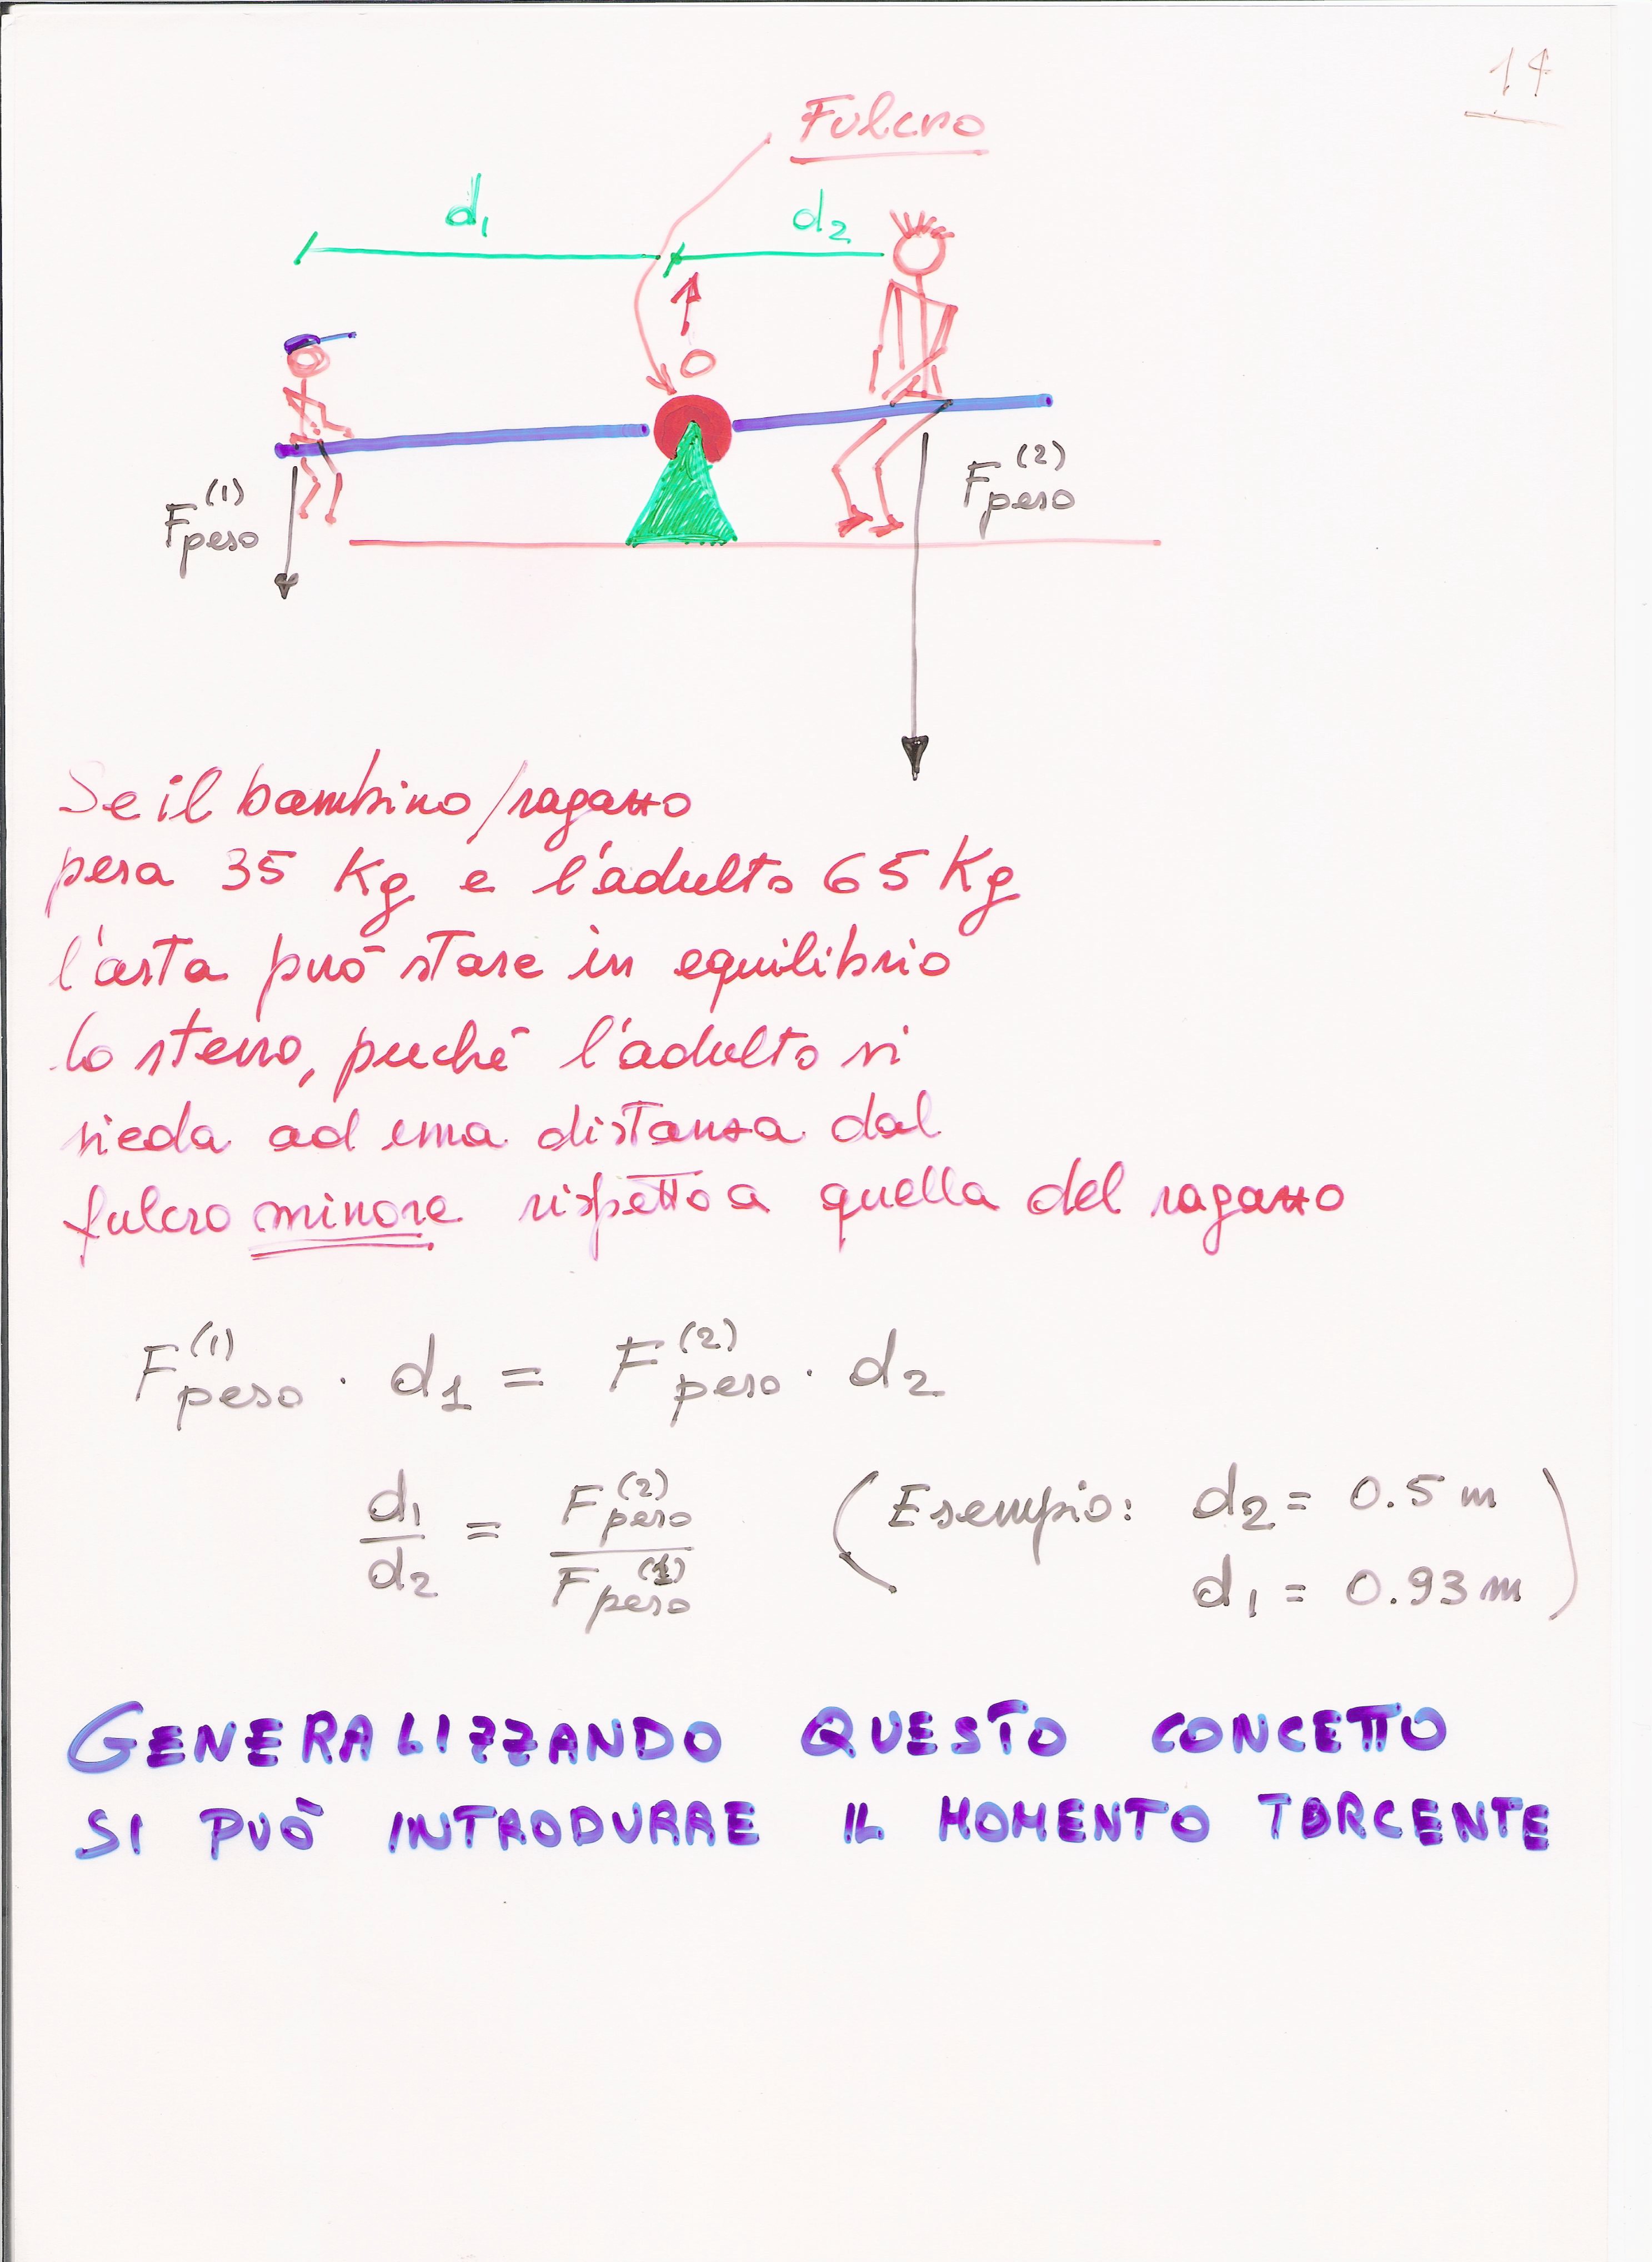 14
Fulcro
d₁ d₂
O
F_peso^(1)
F_peso^(2)
Se il bambino/ragazzo
pesa 35 Kg e l'adulto 65 Kg
l'asta può stare in equilibrio
lo stesso, purché l'adulto si
sieda ad una distanza dal
fulcro minore rispetto a quella del ragazzo
F_peso^(1) · d₁ = F_peso^(2) · d₂
d₁/d₂ = F_peso^(2)/F_peso^(1) (Esempio: d₂ = 0.5 m
d₁ = 0.93 m)
GENERALIZZANDO QUESTO CONCETTO
SI PUÒ INTRODURRE IL MOMENTO TORCENTE